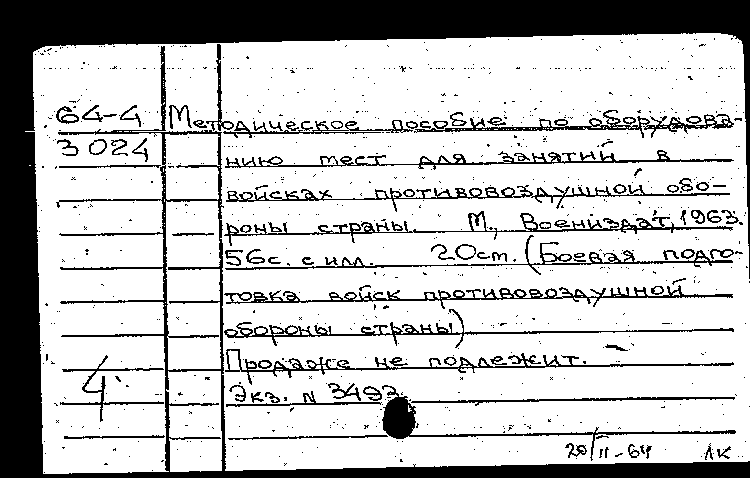 64-4 Методическое пособие по оборудова-
3024 нию мест для занятий в
войсках противовоздушной обо-
роны страны. М., Воениздат, 1963.
56с. с илл. 20ст. (Боевая подго-
товка войск противовоздушной
обороны страны)
Продаже не подлежит.
4
Экз. N 3492
20/II-64 ЛК